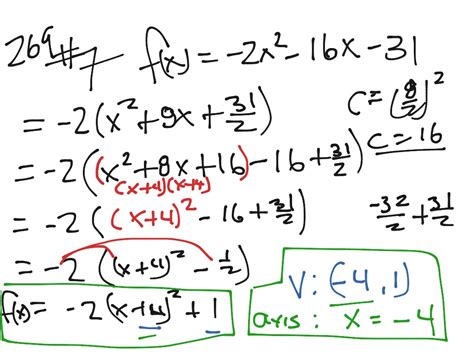 269 #7 f(x) = -2x² - 16x - 31
= -2(x² + 9x + 31/2)
C = (8/2)²
C = 16
= -2((x² + 8x + 16) - 16 + 31/2)
(x+4)(x+4)
= -2((x+4)² - 16 + 31/2)
-32/2 + 31/2
= -2((x+4)² - 1/2)
f(x) = -2(x+4)² + 1
V: (-4, 1)
axis: x = -4